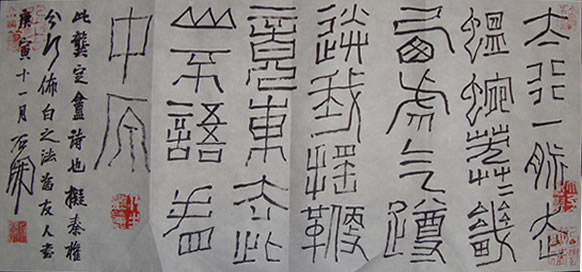 太行一脈走
蝹蜿莽〻畿
西虎气蹲
送我搖鞭
竟東去此
山不語看
中原
此龔定盦詩也擬秦權
分行佈白之法為友人書
庚寅十一月石開